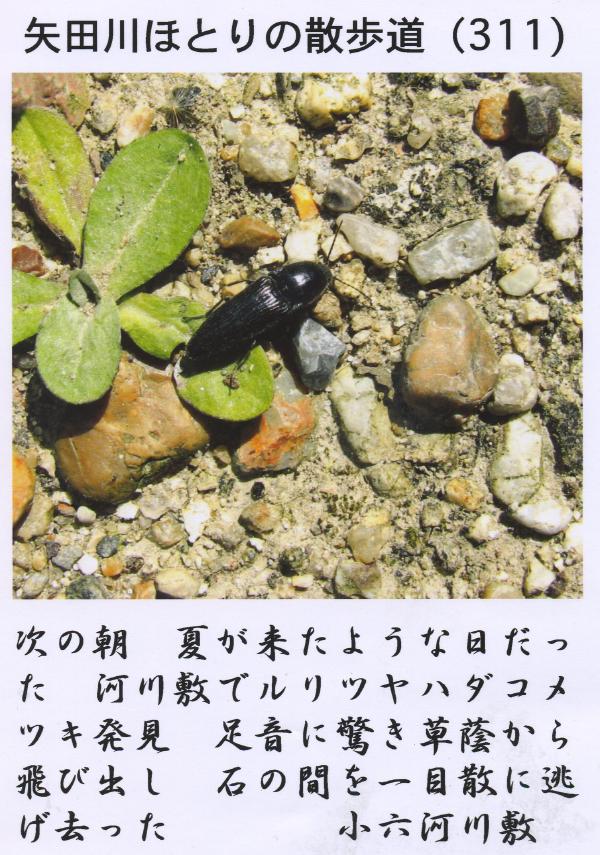 矢田川ほとりの散歩道（311）
次の朝　夏が来たような日だっ
た　河川敷でルリツヤハダコメ
ツキ発見　足音に驚き草蔭から
飛び出し　石の間を一目散に逃
げ去った　　　　小六河川敷